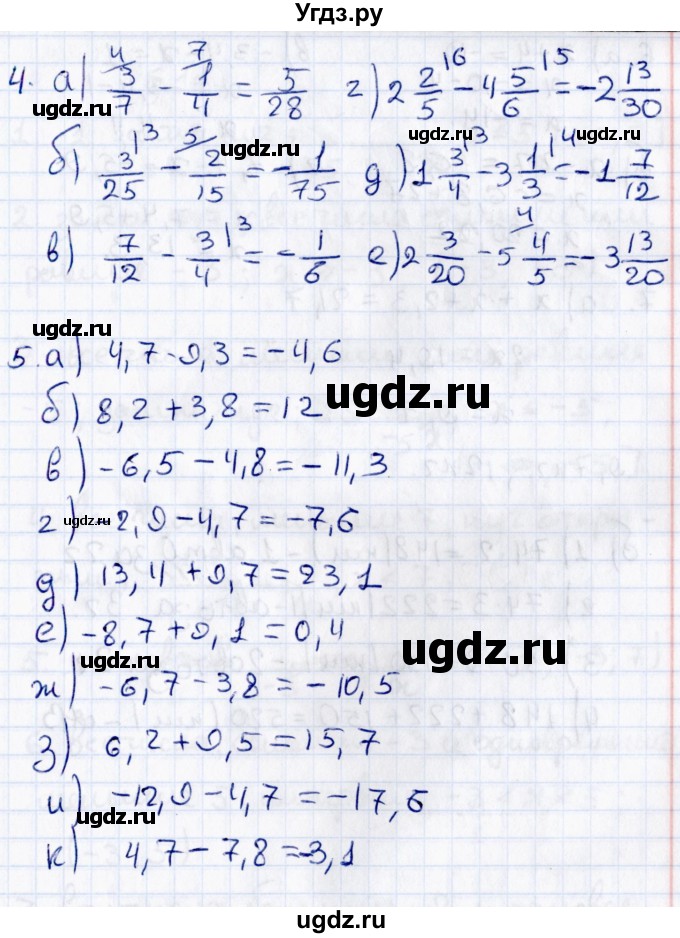 Угдз.ру
4. а) 3/7 ^4 - 1/4 ^7 = 5/28 г) 2 2/5 ^6 - 4 5/6 ^5 = -2 13/30
б) 3/25 ^3 - 2/15 ^5 = -1/75 д) 1 3/4 ^3 - 3 1/3 ^4 = -1 7/12
в) 7/12 - 3/4 ^3 = -1/6 е) 2 3/20 - 5 4/5 ^4 = -3 13/20
5. а) 4,7 - 9,3 = -4,6
б) 8,2 + 3,8 = 12
в) -6,5 - 4,8 = -11,3
г) -2,9 - 4,7 = -7,6
д) 13,4 + 9,7 = 23,1
е) -8,7 + 9,1 = 0,4
ж) -6,7 - 3,8 = -10,5
з) 6,2 + 9,5 = 15,7
и) -12,9 - 4,7 = -17,6
к) 4,7 - 7,8 = -3,1
ugdz.ru
ugdz.ru
ugdz.ru
ugdz.ru
ugdz.ru
ugdz.ru
ugdz.ru
ugdz.ru
ugdz.ru
ugdz.ru
ugdz.ru
ugdz.ru